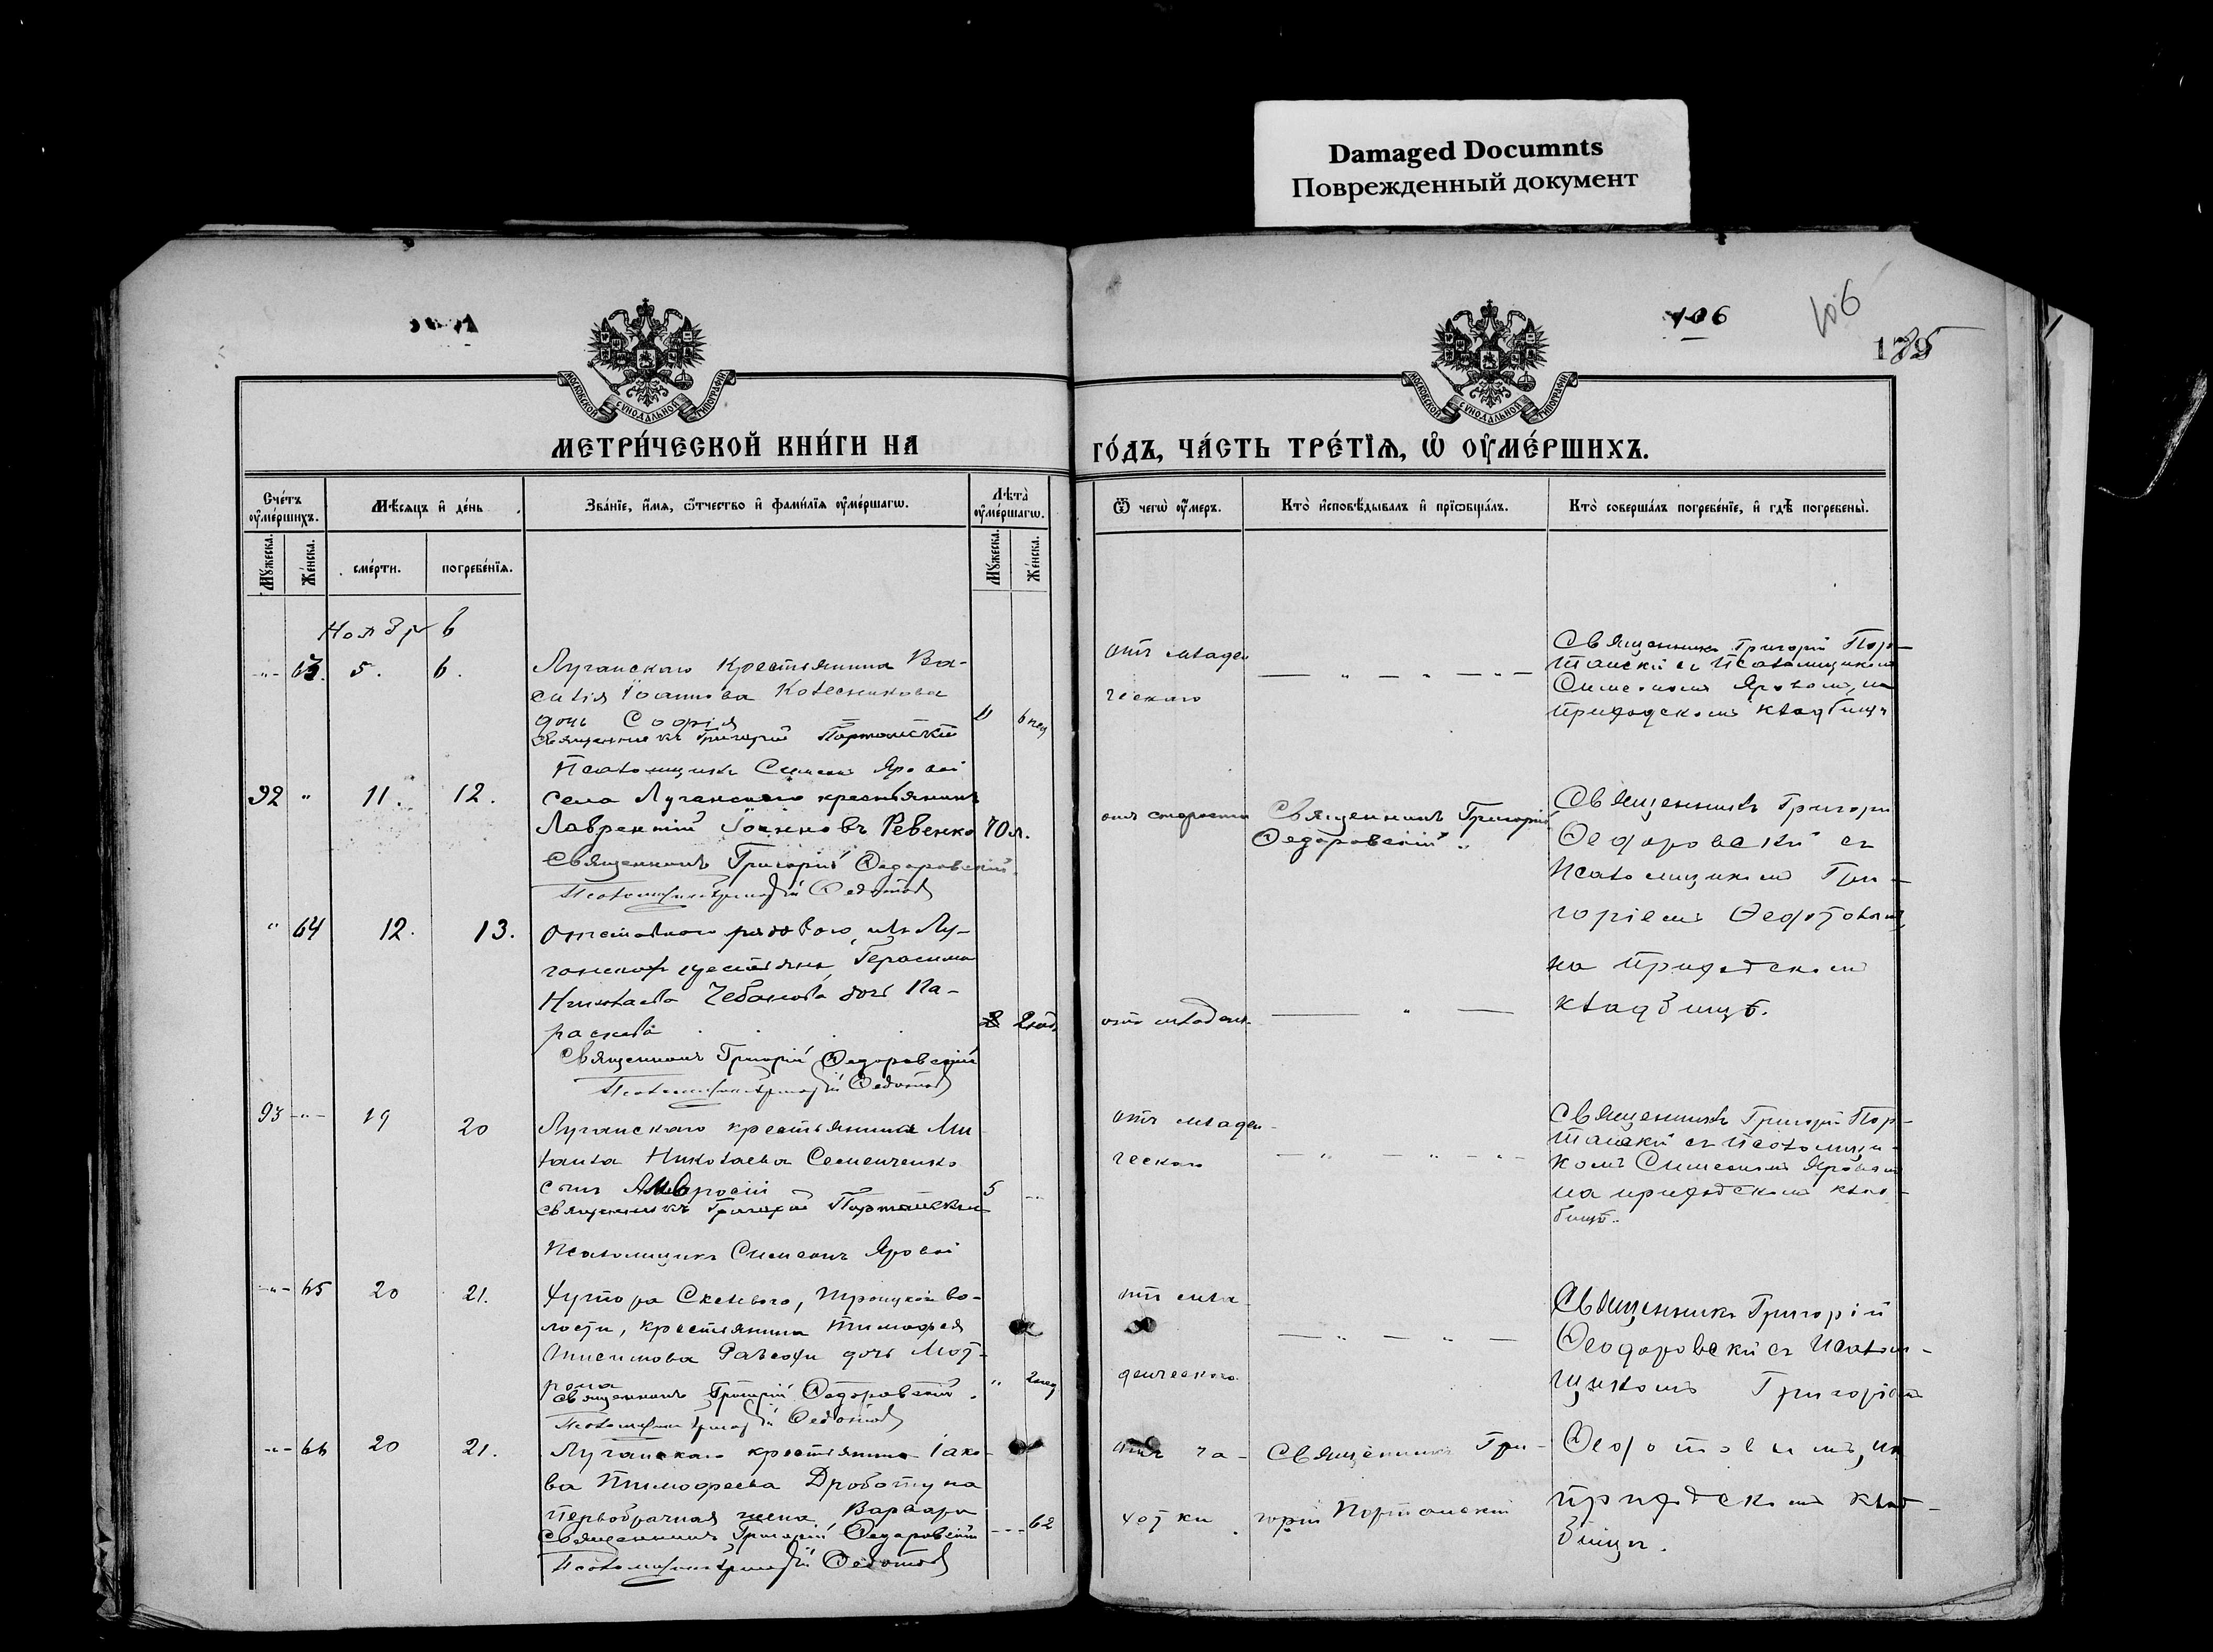 Damaged Documnts
Поврежденный документ
106
106
179
МОСКОВСКОЙ СѴНОДАЛЬНОЙ ТИПОГРАФІИ
МОСКОВСКОЙ СѴНОДАЛЬНОЙ ТИПОГРАФІИ
МЕТРИ́ЧЕСКОЙ КНИ́ГИ НА
ГО́ДЪ, ЧА́СТЬ ТРЕ́ТІѦ, Ѡ҆ ОУ҆МЕ́РШИХЪ.
Сче́тъ оу҆ме́ршихъ.
Мѣ́сѧцъ и҆ де́нь
Зва́нїе, и҆́мѧ, ѻ҆́тчество и҆ фами́лїѧ оу҆ме́ршагѡ.
Лѣ́та оу҆ме́ршагѡ.
Ѿ чегѡ̀ оу҆́меръ.
Кто̀ и҆сповѣ́дывалъ и҆ прїѡбща́лъ.
Кто̀ соверша́лъ погребе́нїе, и҆ гдѣ̀ погребены̀.
Мꙋ́жеска.
Же́нска.
сме́рти.
погребе́нїѧ.
Мꙋ́жеска.
Же́нска.
-"- 63. 5. 6.
Луганскаго Крестьянина Ва-
силія Іоаннова Колесникова
дочь Софія
6 нед
Священникъ Григорій Порталскій
Псаломщикъ Симеонъ Яровой
отъ младен
ческаго
Священникъ Григорій Пор-
талскій съ Псаломщикомъ
Симеономъ Яровымъ, на
приходскомъ кладбищѣ
92 " 11. 12.
Села Луганскаго крестьянинъ
Лаврентій Іоанновъ Ревенко 70 л.
Священникъ Григорій Ѳедоровскій
Псаломщикъ Григорій Ѳедотовъ
отъ старости
Священникъ Григорій
Ѳедоровскій
Священникъ Григорій
Ѳеодоровскій съ
Псаломщикомъ Гри-
горіемъ Ѳедотовымъ,
на приходскомъ
кладбищѣ.
" 64 12. 13.
Отставнаго рядового, изъ Лу-
ганскихъ крестьянъ, Герасима
Николаева Чебанова дочь Па-
раскева
Священникъ Григорій Ѳедоровскій
Псаломщикъ Григорій Ѳедотовъ
отъ младенч.
93 -"- 19 20
Луганскаго крестьянина Ми
хаила Николаева Семенченко
сынъ Амвросій 5 -"-
Священникъ Григорій Порталскій
Псаломщикъ Симеонъ Яровой
отъ младен-
ческаго
Священникъ Григорій Пор-
талскій съ Псаломщи-
комъ Симеономъ Яровымъ
на приходскомъ клад-
бищѣ.
-"- 65 20 21.
Хутора Скелеваго, Троицкой во-
лости, крестьянина Тимофея
дочь Мат-
рона " 2 нед
Священникъ Григорій Ѳедоровскій.
Псаломщикъ Григорій Ѳедотовъ
отъ мла-
денческаго
Священникъ Григорій
Ѳеодоровскій съ Псалом-
щикомъ Григоріемъ
Ѳедотовымъ, на
приходскомъ клад-
бищѣ.
-"- 66 20 21.
Луганскаго крестьянина Іако-
ва Тимофеева Дроботуна
первобрачная жена Варвара -"- 62
Священникъ Григорій Ѳедоровскій
Псаломщикъ Григорій Ѳедотовъ
отъ ча-
хотки
Священникъ Гри-
горій Порталскій